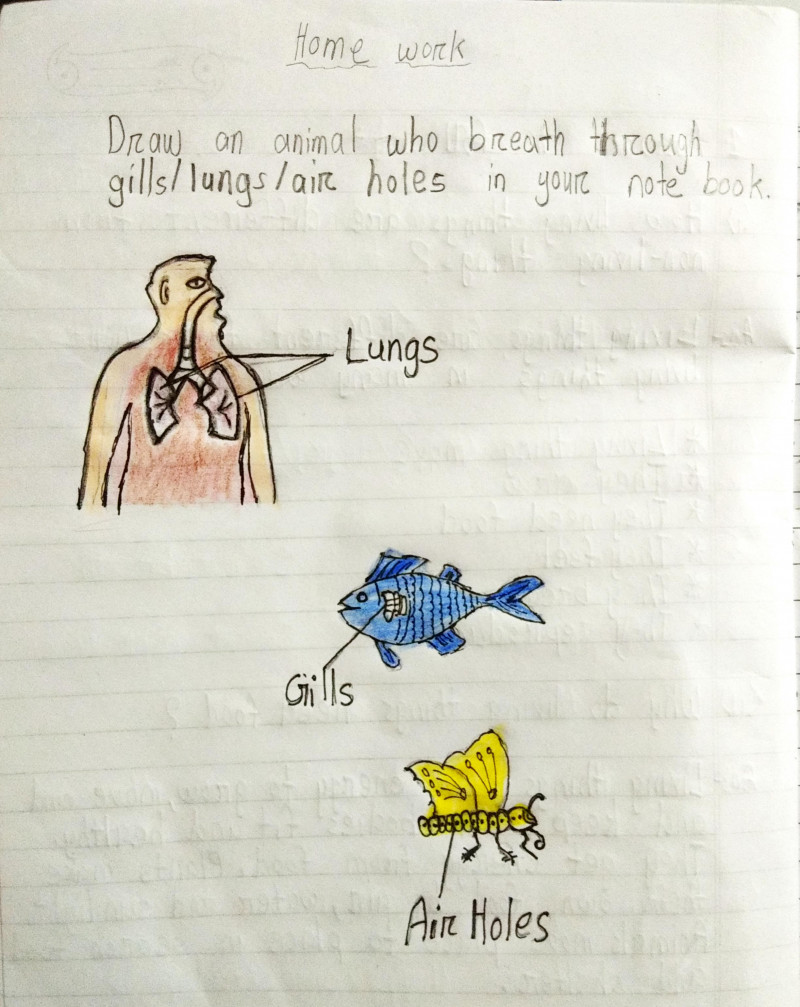 Home work
Draw an animal who breath through
gills/lungs/air holes in your note book.
Lungs
Gills
Air Holes